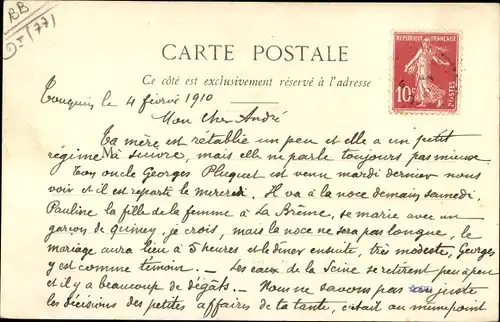 BB
(77)
CARTE POSTALE
Ce côté est exclusivement réservé à l'adresse
REPUBLIQUE FRANÇAISE
10c
POSTES
4 février 1910
Mon Cher André
Ta mère est rétablie un peu et elle a un petit
régime à suivre, mais elle ne parle toujours pas mieux.
Ton oncle Georges Pluquet est venu mardi dernier nous
voir et il est reparti le mercredi. Il va à la noce demain samedi.
Pauline la fille de la femme à La Brême, se marie avec un
garçon de Quincy, je crois, mais la noce ne sera pas longue, le
mariage aura lieu à 5 heures et le dîner ensuite, très modeste, Georges
y est comme témoin. — Les eaux de la Seine se retirent peu à peu
et il y a beaucoup de dégats. — Nous ne savons pas au juste
les décisions des petites affaires de ta tante, c'était au même point